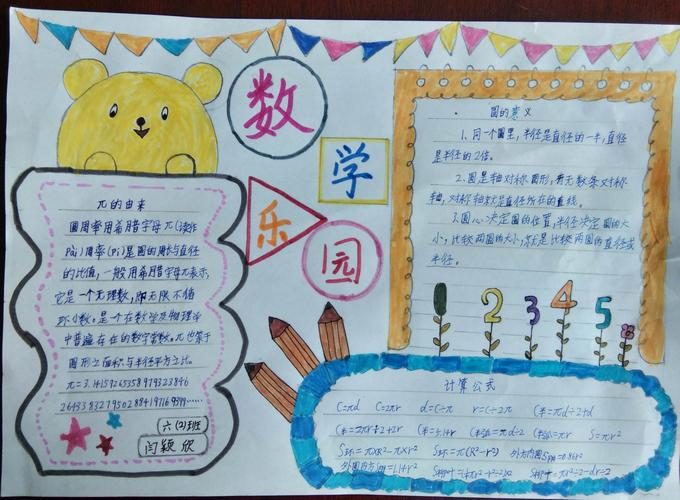 数
学
乐
园
π的由来
圆周率用希腊字母π(读作
Pài)周率(Pi)是圆的周长与直径
的比值，一般用希腊字母π表示，
它是一个无理数，即无限不循
环小数。是个在数学及物理学
中普遍存在的数学常数。π也等于
圆形之面积与半径平方之比。
π=3.14159265358979323846
26433832795028841971693999……
六(2)班
闫颖欣
圆的意义
1、同一个圆里，半径是直径的一半，直径
是半径的2倍。
2、圆是轴对称图形，有无数条对称
轴，对称轴就是直径所在的直线。
3、圆心决定圆的位置，半径决定圆的大
小，比较两圆的大小，就是比较两圆的直径或
半径。
1 2 3 4 5
计算公式
C=πd C=2πr d=C÷π r=C÷2π C半=πd÷2+d
C半=2πr÷2+2r C半=5.14r πd÷2 =πr S=πr²
S环=πxR²-πxr² S环=π(R²-r²) 外方内圆